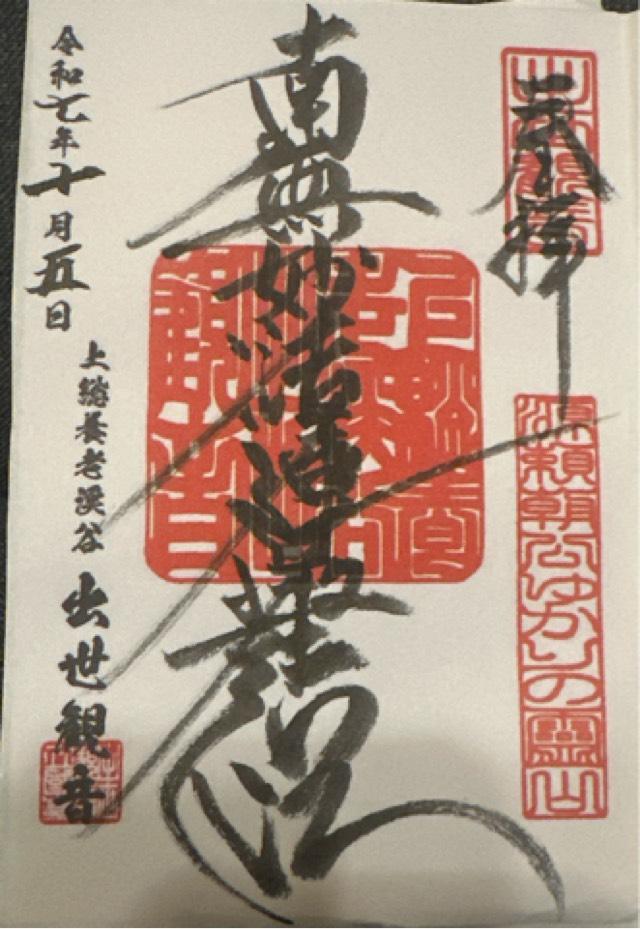 奉拝
源頼朝公ゆかりの霊山
南無妙法蓮華経
令和七年十月五日
上総養老渓谷 出世観音